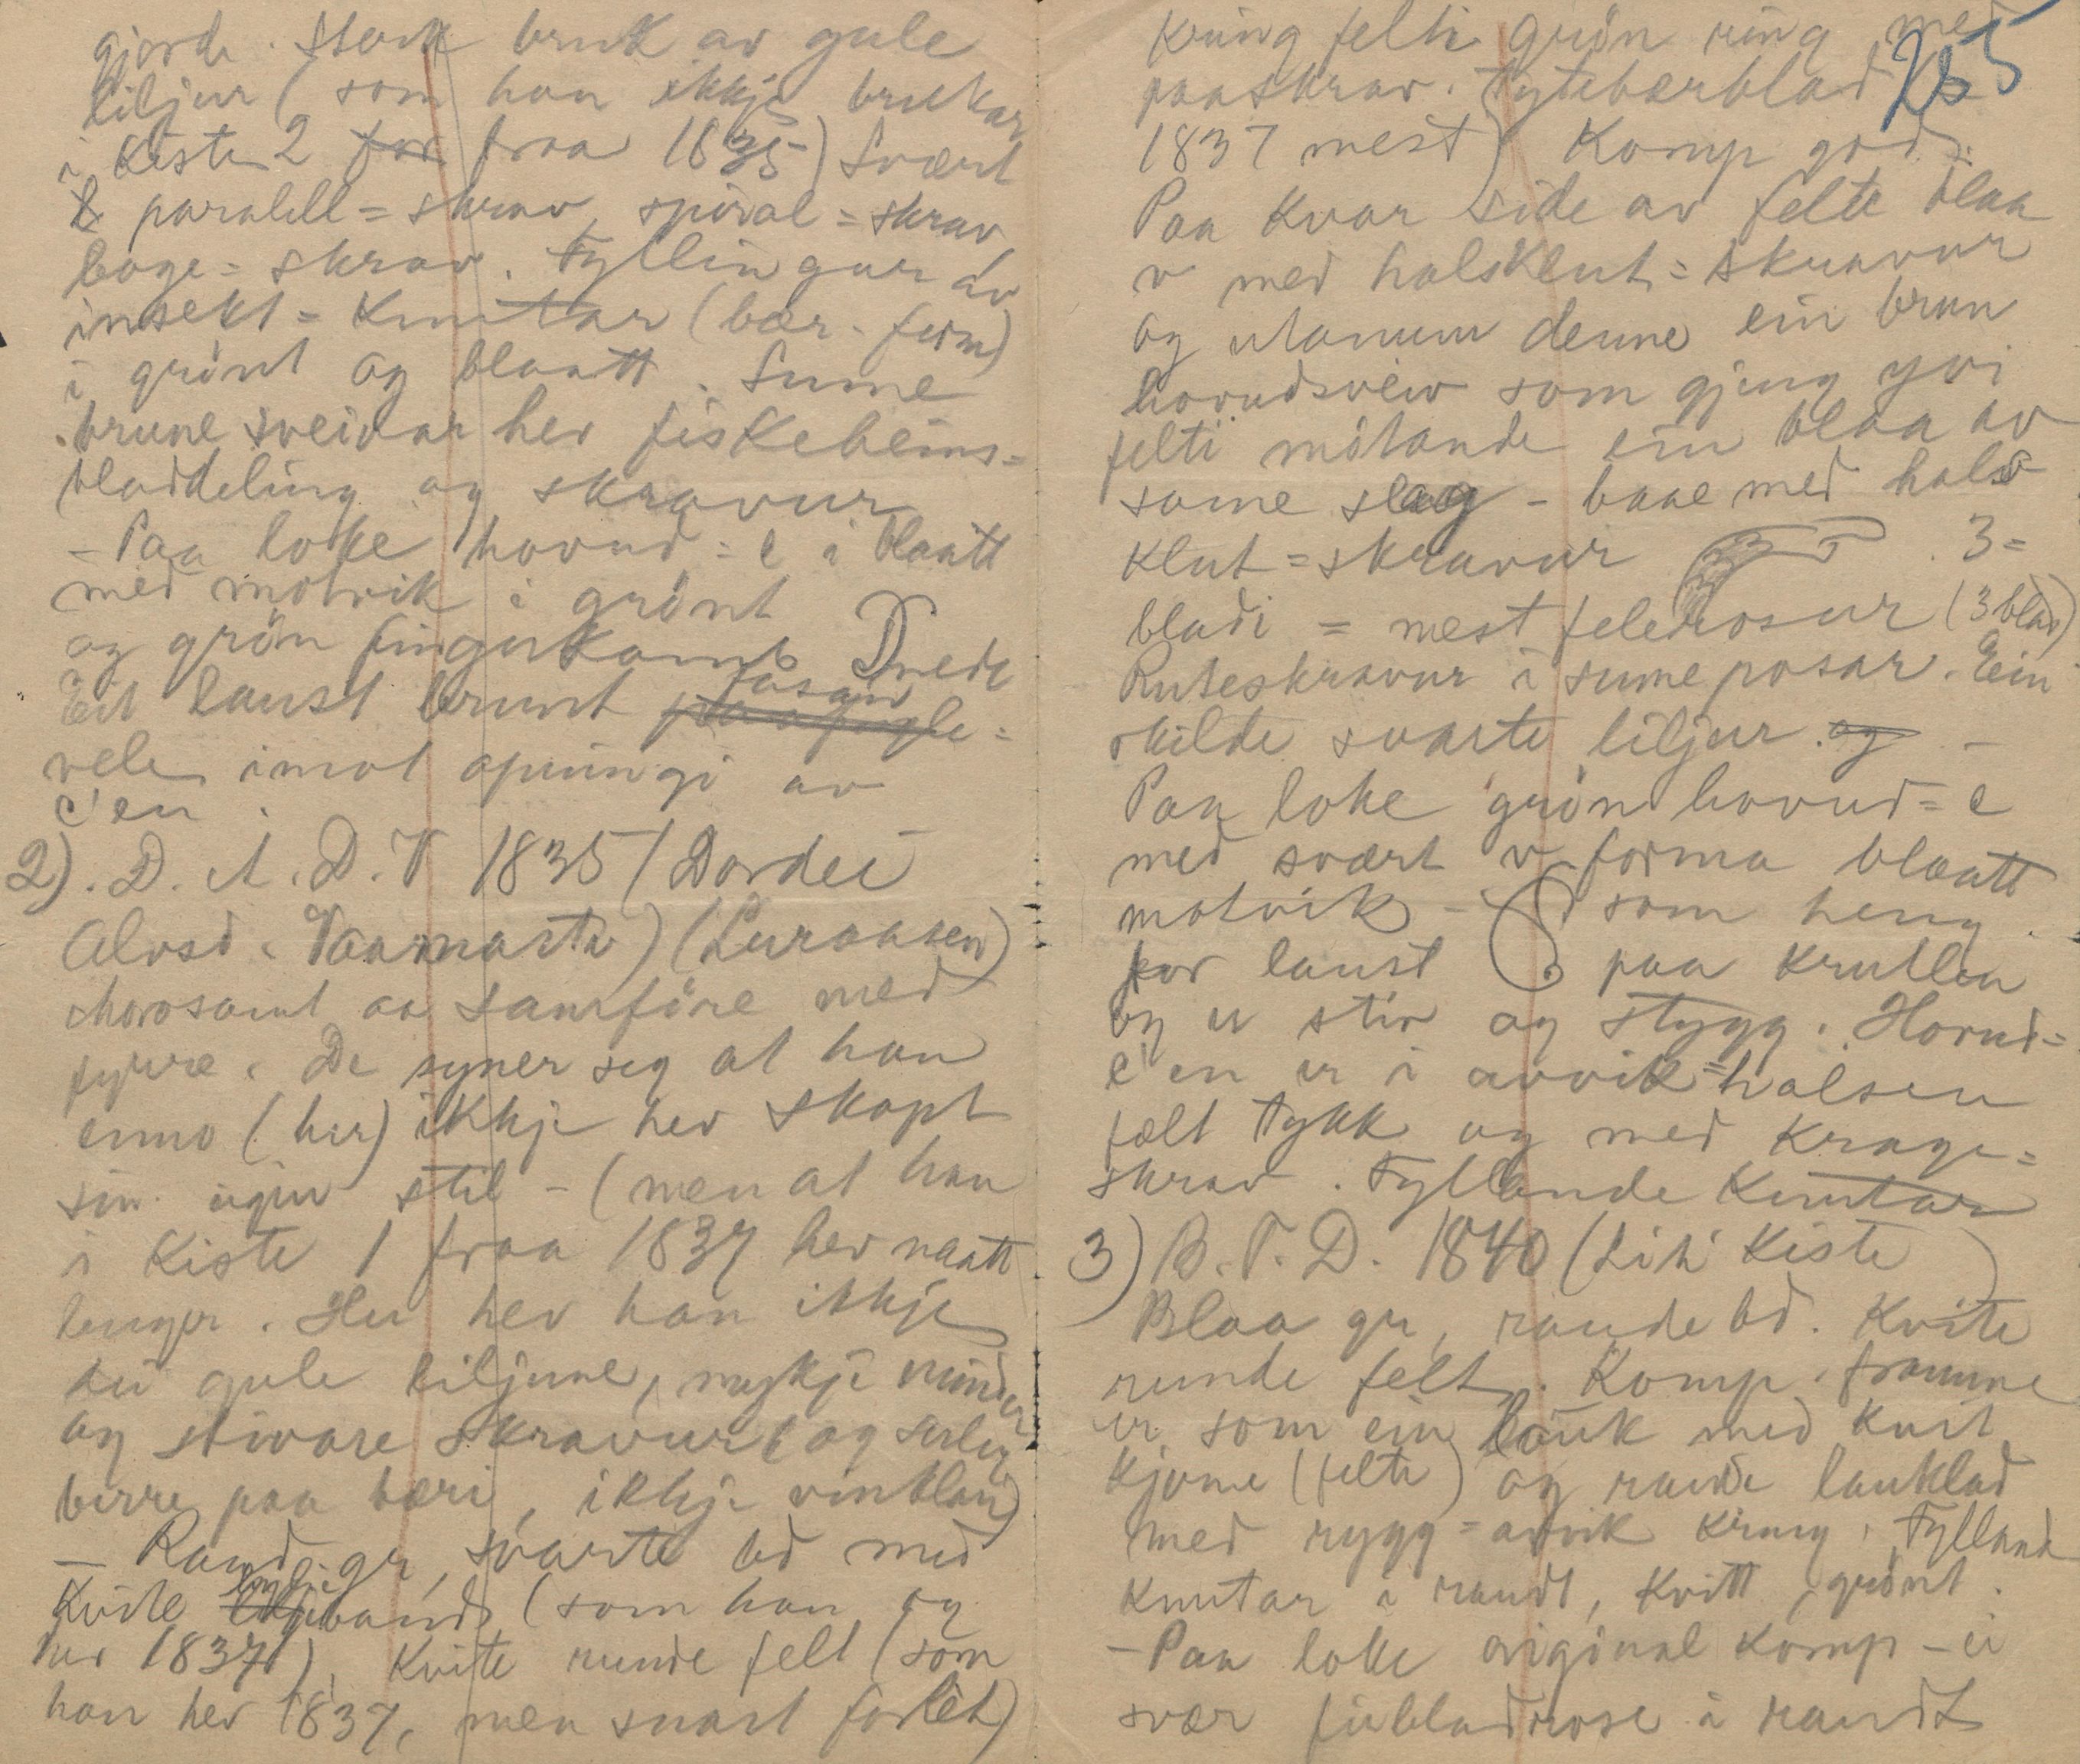 gjorde. Sterk bruk av gule
liljur (som han ikkje brukar
i Kiste 2 for fraa 1835) Svært
paralell=skrav, spiral=skrav
boge=skrav. Fyllingar av
insekt=Knutar (bær-form)
i grönt og blaatt. Sume
brune sveivar hev fiskebeins=
bladdeling og skravur
- Paa loke hovud=c i blaatt
med motvik i grönt
og grön fingerkamb D nede
Eit laust brunt fasan
vele imot opningi av
c'en.
2). D. A. D. V 1835 (Dordei
Alvsd. Vaarnarta) (Luraasen)
Morosamt aa samföre med
fyrre. De syner seg at han
enno (her) ikkje hev skapt
sin eigin stil - (men at han
i Kiste 1 fraa 1837 hev naatt
lenger. Her hev han ikkje
dei gule liljune, mykje mindre
og stivare skravur (og serleg
berre paa bæri, ikkje vinblau)
- Raud gr, svarte bd med
Kvite band (som han og
hev 1837), Kvite runde felt (som
han hev 1837, men snart forlét)
265
Kring felti grön ring med
paaskrav. Tytebærblad
1837 mest) Komp god.
Paa Kvar side av felte blaa
v med halsklut=skravur
og utanum denne ein brun
hovudsveiv som gjeng yvi
felti mötande ein blaa av
same slag - baae med hals
klut=skravur 3=
bladi = mest felerosur (3 blad)
Ruteskravur i sume rosar. Ein
skilde svarte liljur. og -
Paa loke grön hovud=c
med svært v forma blaatt
motvik - som heng
for laust paa krullen
og er stiv og stygg. Hovud=
c'en er i avvik=halsen
fælt tykk og med krage=
skrav. Fyllande Knutar
3) B. T. D. 1840 (Liti Kiste)
Blaa gr, raude bd. Kvite
runde felt. Komp. framme
er som ein lauk med kvit
kjerne (felte) og raude lauklad
med rygg=avvik kring. Fylland
knutar i raudt, kvitt, grönt.
- Paa loke original komp - ei
svær firbladrose i raudt